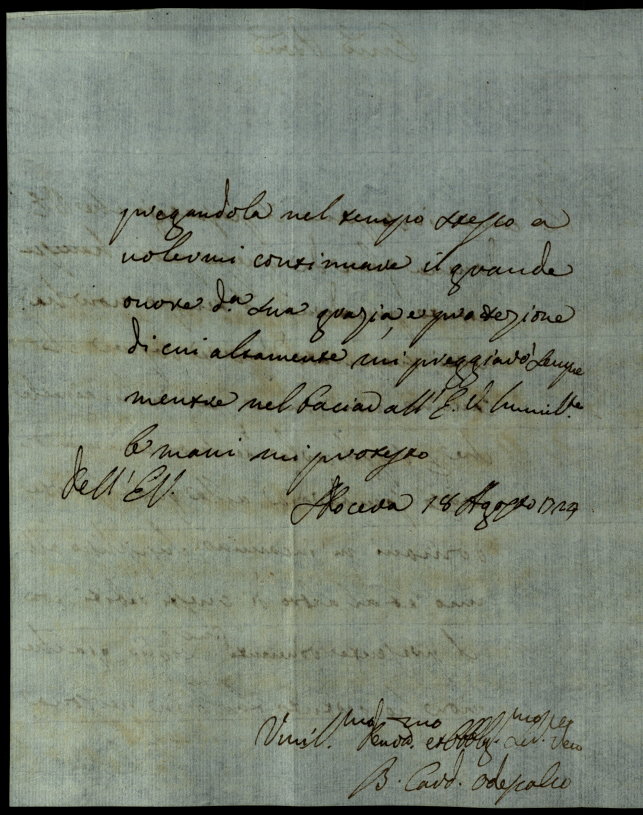 pregandola nel tempo stesso a
volermi continuare il grande
onore d.a sua grazia, e protezione
di cui altamente mi preggiarò sempre
mentre nel baciar all' E. V. humil.te
le mani mi protesto
Dell' E V.
18 Agosto 1727
Vmil.mo et obblig.mo
B. Card. Odescalco